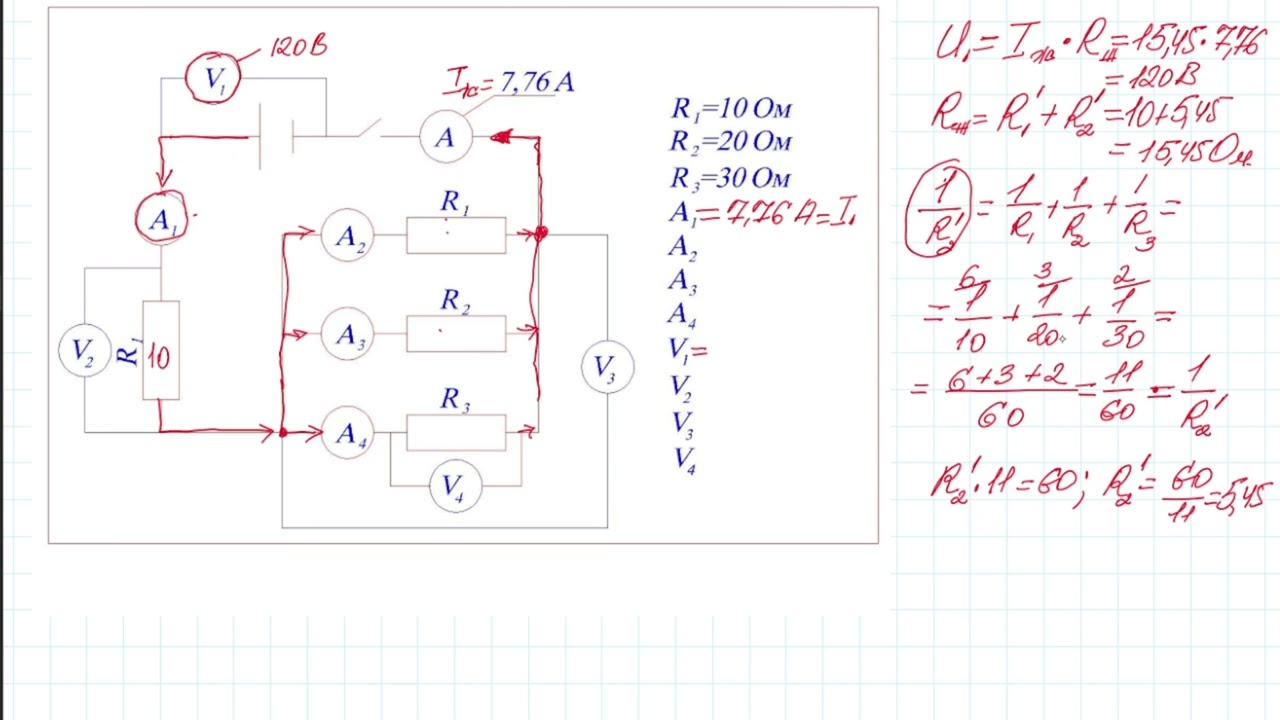 120В
V₁
Iэс = 7,76 А
A
A₁
A₂ R₁
A₃ R₂
A₄ R₃
V₂ R₁ 10
V₃
V₄
R₁=10 Ом
R₂=20 Ом
R₃=30 Ом
A₁=7,76 А=I₁
A₂
A₃
A₄
V₁=
V₂
V₃
V₄
U₁=Iэкв·Rэкв=15,45·7,76
=120В
Rэкв=R₁'+R₂'=10+5,45
=15,45Ом
1/R₂' = 1/R₁ + 1/R₂ + 1/R₃ =
= 6 1/10 + 3 1/20 + 2 1/30 =
= (6+3+2)/60 = 11/60 = 1/R₂'
R₂'·11=60; R₂'=60/11=5,45